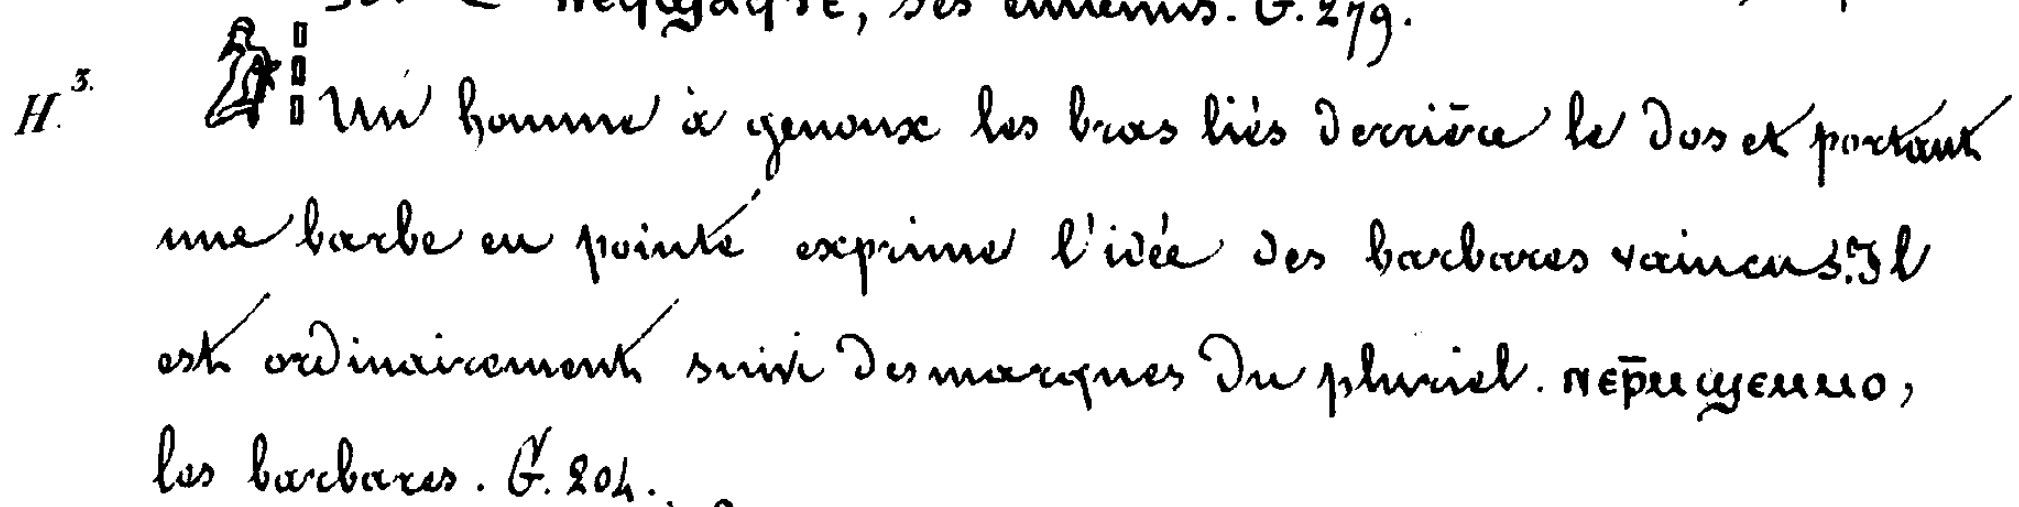 ses ennemis. G. 279.
H.3. Un homme à genoux les bras liés derrière le dos et portant
une barbe en pointe exprime l'idée des barbares vaincus. Il
est ordinairement suivi des marques du pluriel. ⲛⲉⲣ̄ⲙϣⲉⲙⲙⲟ,
les barbares. G. 204.